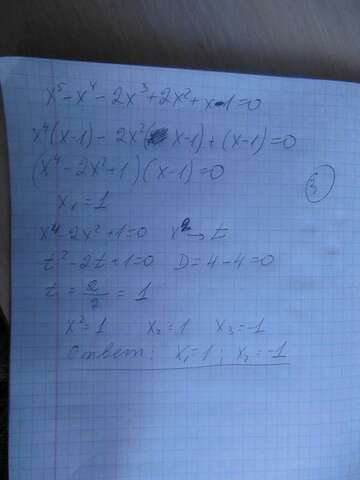 x⁵ - x⁴ - 2x³ + 2x² + x - 1 = 0
x⁴(x-1) - 2x²(x-1) + (x-1) = 0
(x⁴ - 2x² + 1)(x-1) = 0
3
x₁ = 1
x⁴ 2x² + 1 = 0 x² → t
t² - 2t + 1 = 0 D = 4 - 4 = 0
t = 2/2 = 1
x² = 1 x₂ = 1 x₃ = -1
Ответ: x₁ = 1 ; x₂ = -1